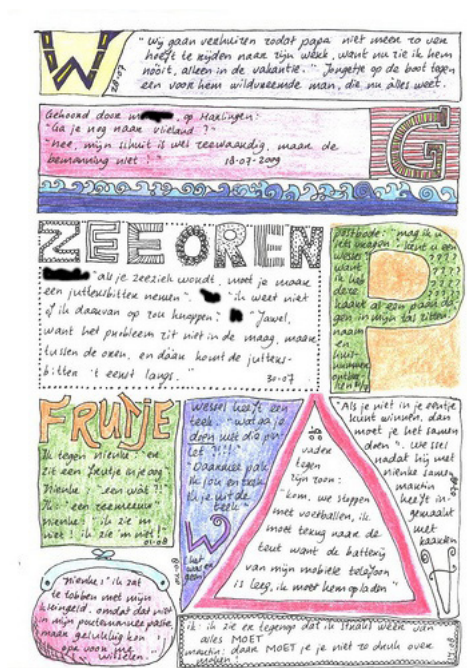 W
28-07
"Wij gaan verhuizen zodat papa niet meer zo ver
heeft te rijden naar zijn werk, want nu zie ik hem
nooit, alleen in de vakantie." Jongetje op de boot tegen
een voor hem wildvreemde man, die nu alles weet.
Gehoord door m, op Harlingen:
"Ga je nog naar Vlieland?"
"nee, mijn schuit is wel zeewaardig, maar de
bemanning niet!" 18-07-2009
G
ZEE OREN
"als je zeeziek wordt, moet je maar
een juttersbitter nemen". "ik weet niet
of ik daarvan op zou knappen." "Jawel,
want het probleem zit niet in de maag, maar
tussen de oren, en dáár komt de jutters-
bitter 't eerst langs." 30-07
P
postbode: "mag ik u
iets vragen - kent u een
wessel ????
want ????
ik heb ????
deze
kaart al een paar da-
gen in mijn tas zitten
naam
en
huis-
nummer
FRUTJE
Ik tegen nienke: "er
zit een frutje in je oog"
Nienke: "een wát?!"
Ik: "een zeemeeuw"
nienke: ik zie 'm
niet! ik zie 'm niet!!
01-08
wessel heeft een
teek: "wat ga je
doen met die pin-
cet?!!!"
"Daarmee pak
ik jou en trek
ik je uit de
teek"
W
(het
was er
geen)
vader
tegen
zijn zoon:
"kom, we stoppen
met voetballen, ik
moet terug naar de
tent want de batterij
van mijn mobiele telefoon
is leeg, ik moet hem opladen"
"Als je niet in je eentje
kunt winnen, dan
moet je het samen
doen". wessel
nadat hij met
nienke samen
martin
heeft in-
gemaakt
met
kaarten
nienke: "ik zat
te tobben met mijn
kleingeld, omdat dat niet
in mijn portemonnee paste,
maar gelukkig kon
opa voor me
wisselen."
ik: ik zie er tegenop dat ik straks weer van
alles MOET
martin: daar MOET je je niet zo druk over
maken!